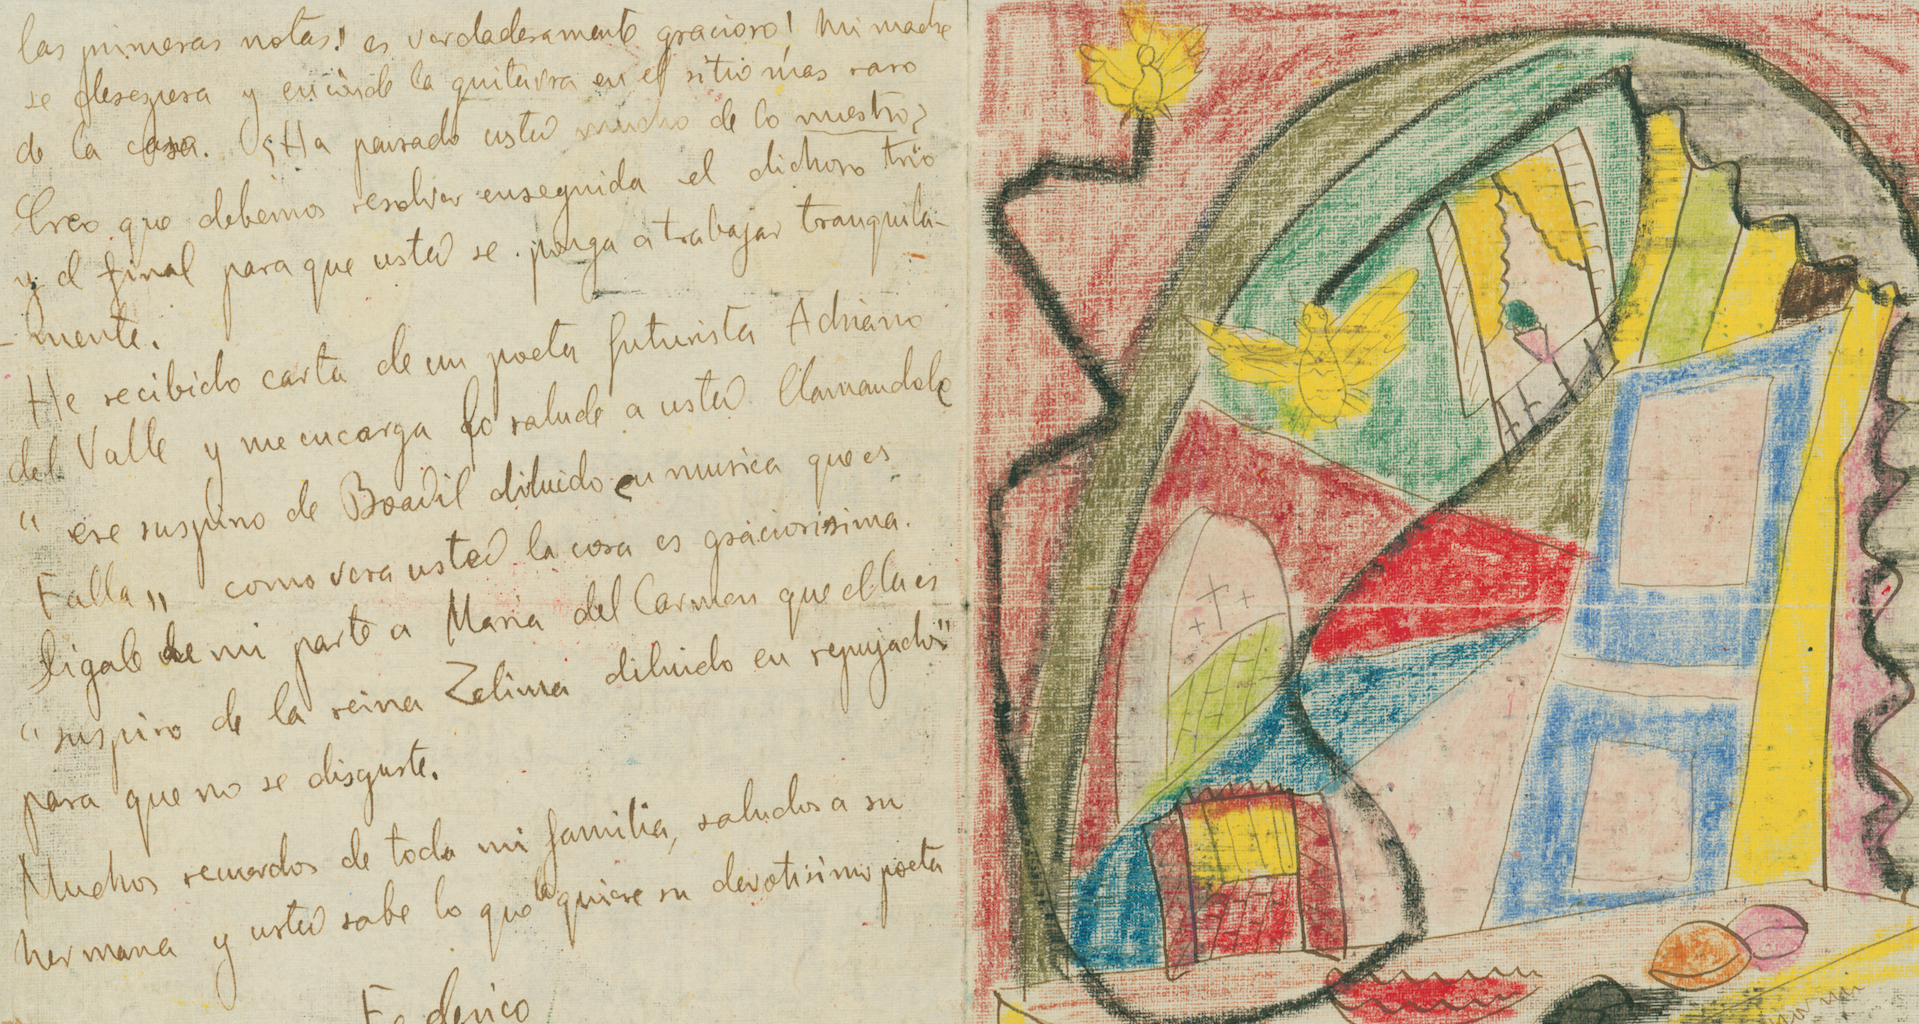 las primeras notas! es verdaderamente gracioso! Mi madre
se desespera y esconde la guitarra en el sitio mas raro
de la casa. ¿Ha pensado usted mucho de lo nuestro?
Creo que debemos resolver enseguida el dichoso trio
y el final para que usted se ponga a trabajar tranquila-
-mente.
He recibido carta de un poeta futurista Adriano
del Valle y me encarga lo salude a usted llamandole
“ese suspiro de Boadil diluido en musica que es
Falla” como vera usted la cosa es graciosisima.
Digale de mi parte a Maria del Carmen que ella es
“suspiro de la reina Zelima diluido en repujados”
para que no se disguste.
Muchos recuerdos de toda mi familia, saludos a su
hermana y usted sabe lo que le quiere su devotisimo poeta
Federico